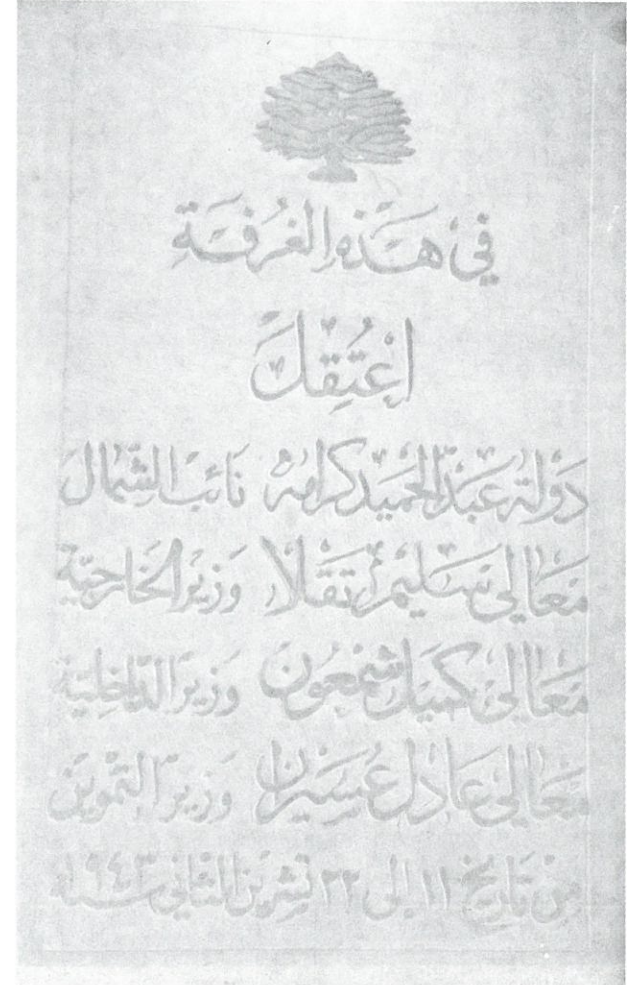 في هَذِهِ الغُرفَةِ
اُعْتُقِلَ
دَولة عَبْد الحَميد كرامه نَائب الشِّمال
مَعالي سَليم تَقلا وَزير الخَارجيَّة
مَعالي كميل شَمعُون وَزير الدَّاخليّة
مَعالي عَادل عُسَيران وَزير التَّموين
من تَاريخ ١١ الى ٢٢ تشرين الثاني سَنة ١٩٤٣